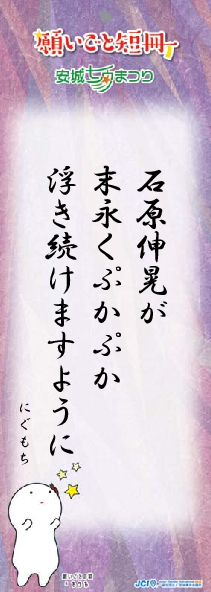 願いごと短冊
安城七夕まつり
石原伸晃が
末永くぷかぷか
浮き続けますように
にぐもち
願いごと短冊